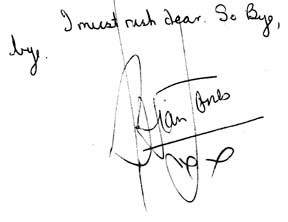 I must rush dear. So Bye,
bye.
Brian Jones
xx